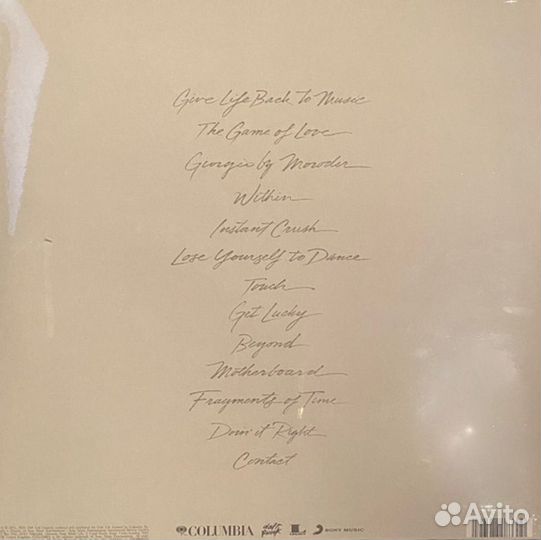 Give Life Back to Music
The Game of Love
Giorgio by Moroder
Within
Instant Crush
Lose Yourself to Dance
Touch
Get Lucky
Beyond
Motherboard
Fragments of Time
Doin' it Right
Contact
COLUMBIA daft punk SONY MUSIC
Avito